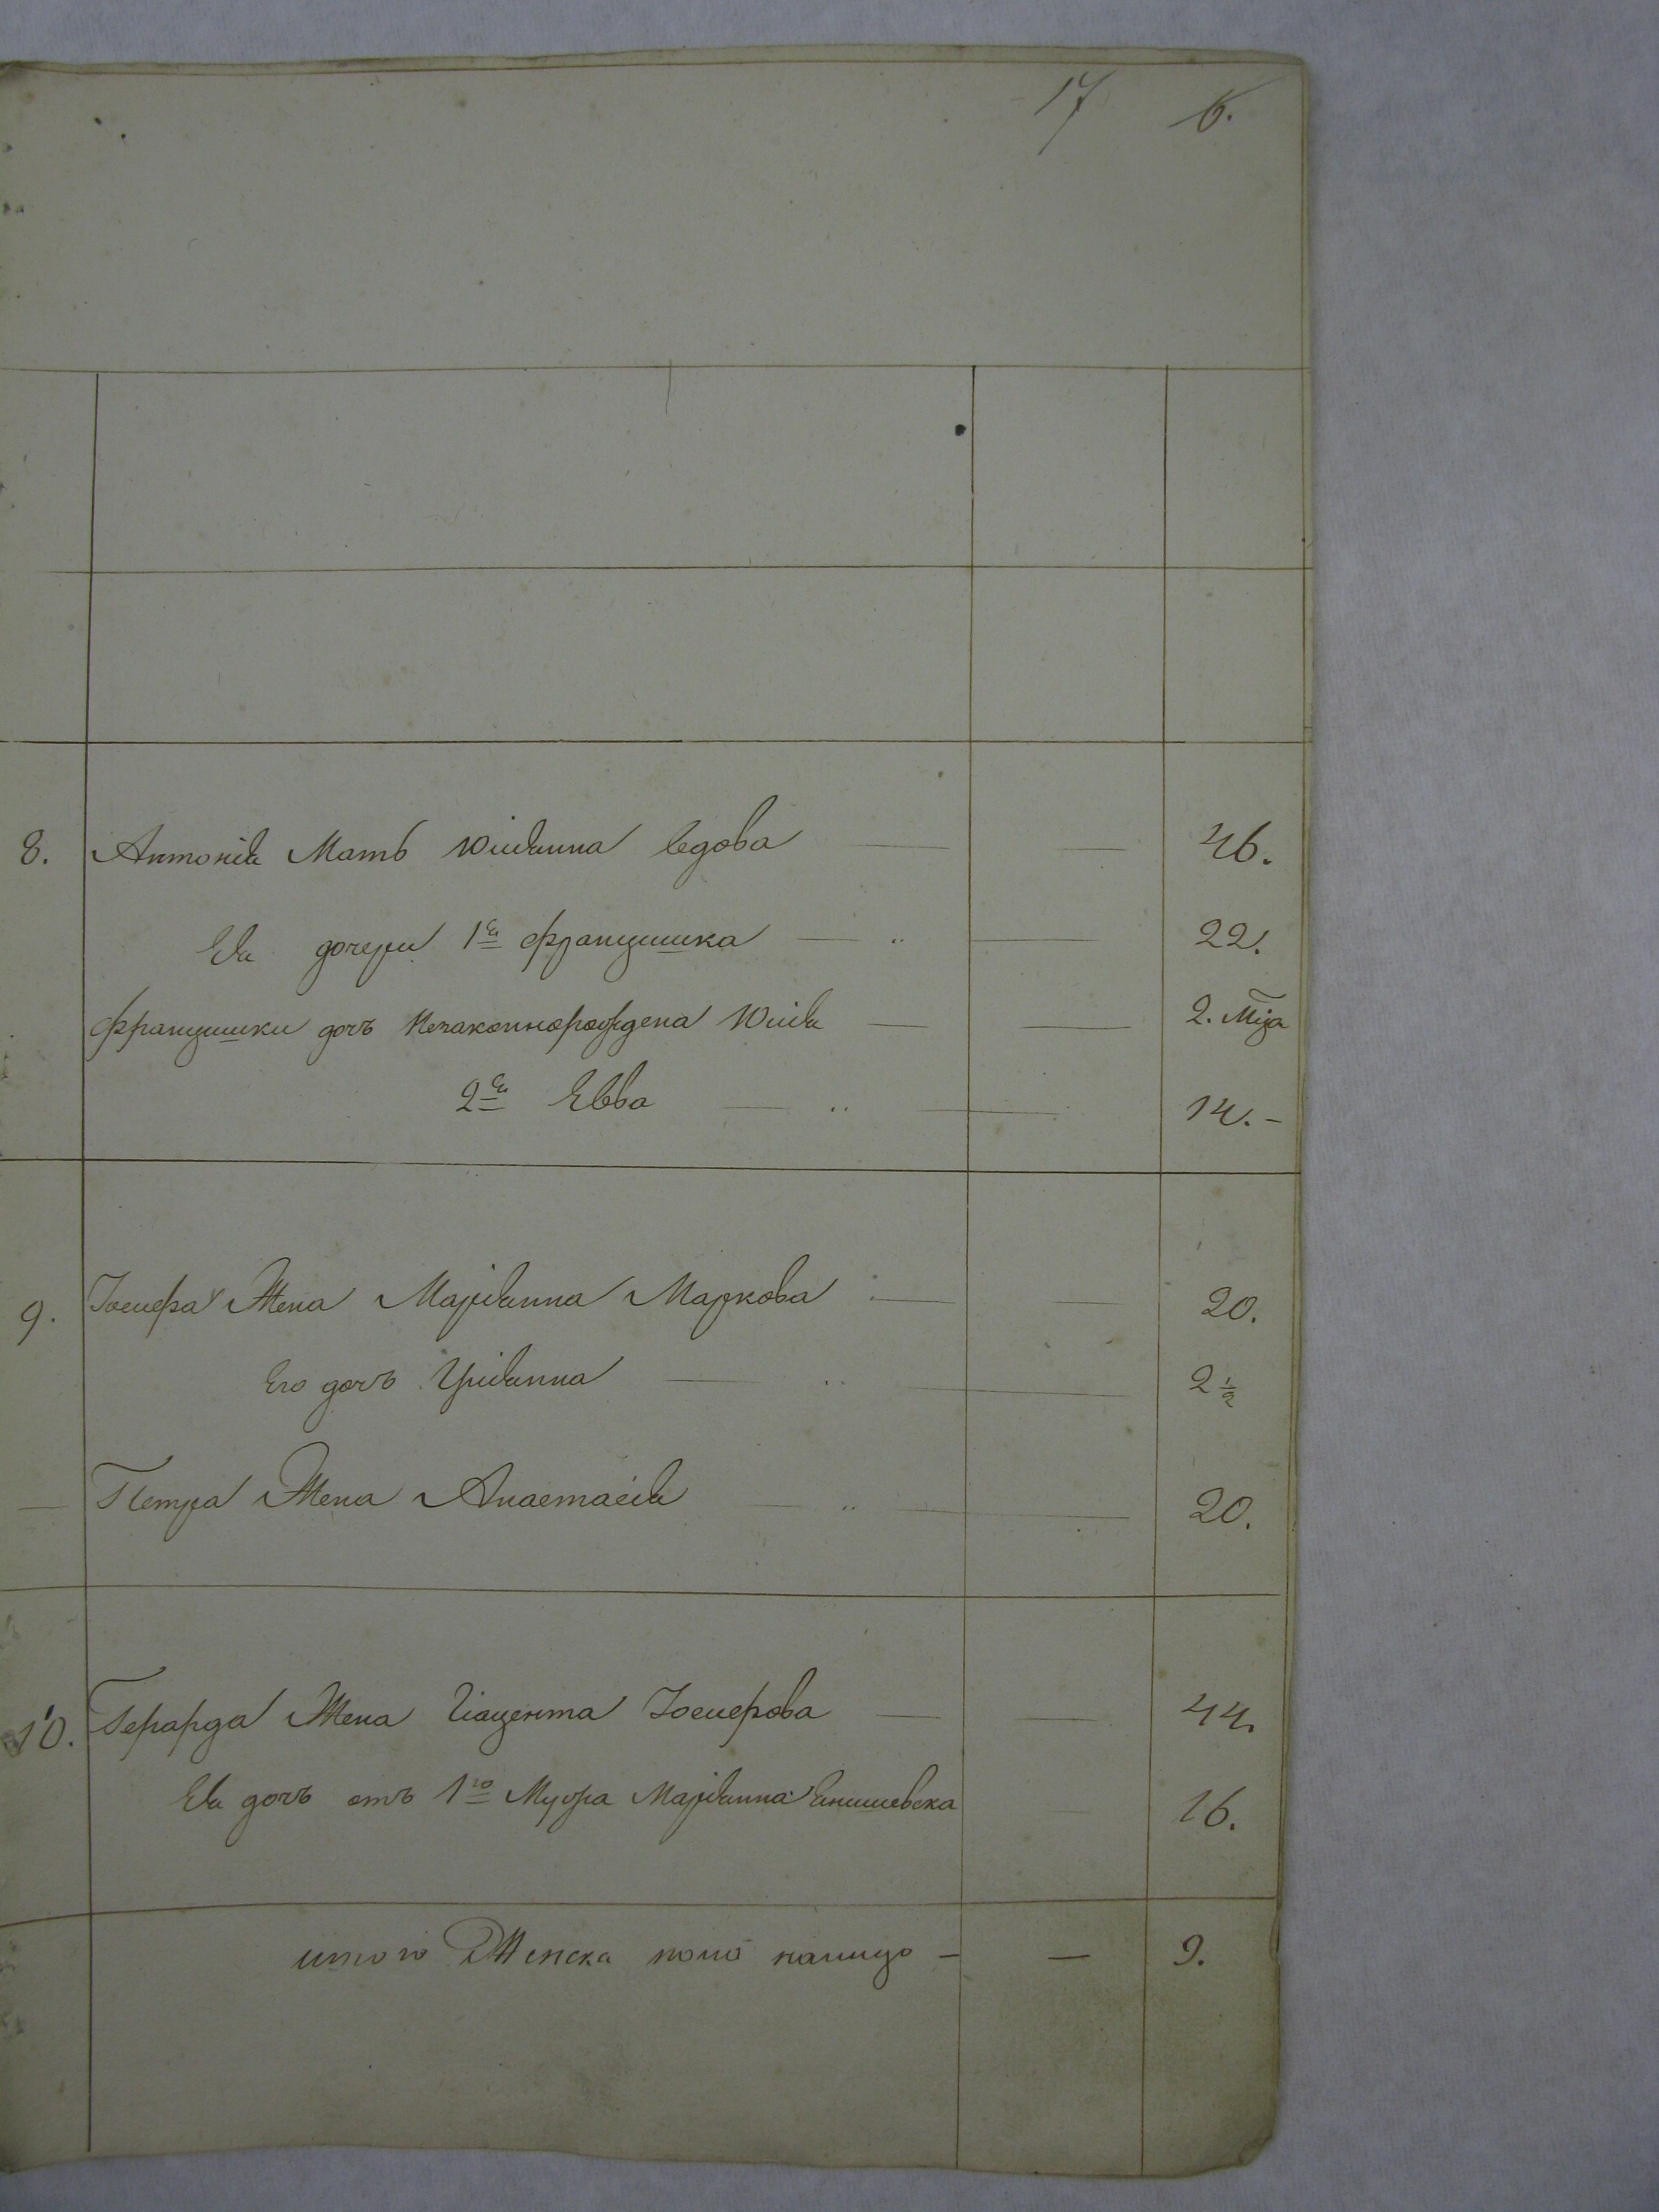 17 6.
8. Антонія Мать Юліянна вдова — — 46.
Ея дочери 1я Францишка — „ — 22.
Францишки дочь Незаконнорождена Юлія — — 2. Мца
2я Евва — „ — 14. –
9. Іосифа Жена Маріянна Маркова — — 20.
Его дочь Уліянна — „ — 2 ½
— Петра Жена Анастасія — „ — 20.
10. Герарда Жена Гіацента Іосифова — — 44.
Ея дочь отъ 1го Мужа Маріянна — 16.
итого Женска пола налицо — — 9.